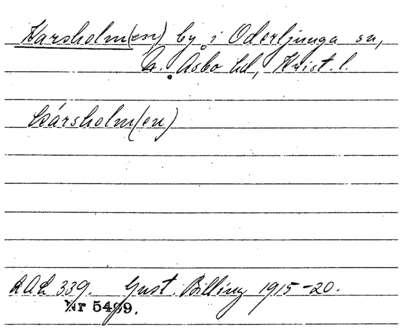 Harsholm(en) by i Oderljunga sn,
N. Åsbo hd, Krist. l.
Hársholm(en)
DAL 339. Gust. Billing 1915-20.
Nr 5499.